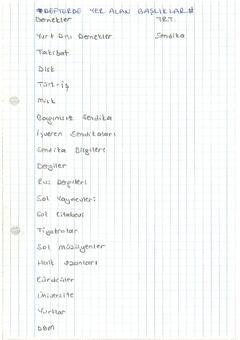 # DEFTERDE YER ALAN BAŞLIKLAR #
Dernekler
TRT.
Yurt Dışı Dernekler
Sendika
Takibat
Disk
Türk-iş
Misk
Bağımsız Sendika
İşveren Sendikaları
Sendika Bilgileri
Dergiler
Dergileri
Sol Yayınevleri
Sol Kitabevi
Tiyatrolar
Sol müzisyenler
Halk ozanları
Kürdcüler
Üniversite
Yurtlar
DGM